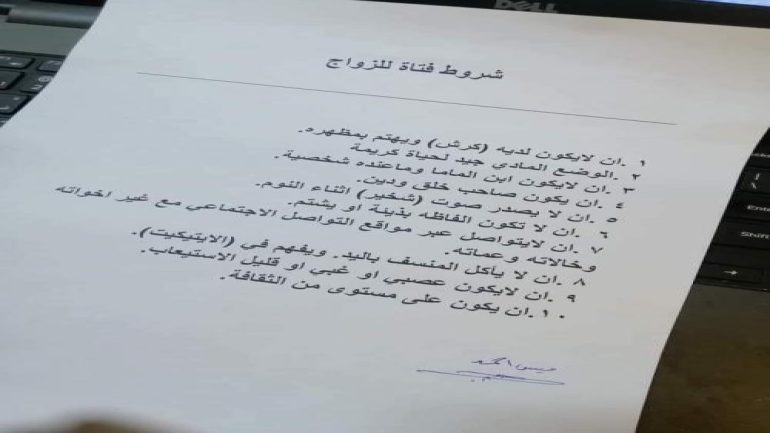 DELL
شروط فتاة للزواج
١ .ان لايكون لديه (كرش) ويهتم بمظهره.
٢ .الوضع المادي جيد لحياة كريمة
٣ .ان لايكون ابن الماما وماعنده شخصية.
٤ .ان يكون صاحب خلق ودين.
٥ .ان لا يصدر صوت (شخير) اثناء النوم.
٦ .ان لا تكون الفاظه بذيئة او يشتم.
٧ .ان لايتواصل عبر مواقع التواصل الاجتماعي مع غير اخواته
وخالاته وعماته.
٨ .ان لا يأكل المنسف باليد. ويفهم في (الايتيكيت).
٩ .ان لايكون عصبي او غبي او قليل الاستيعاب.
١٠ .ان يكون على مستوى من الثقافة.